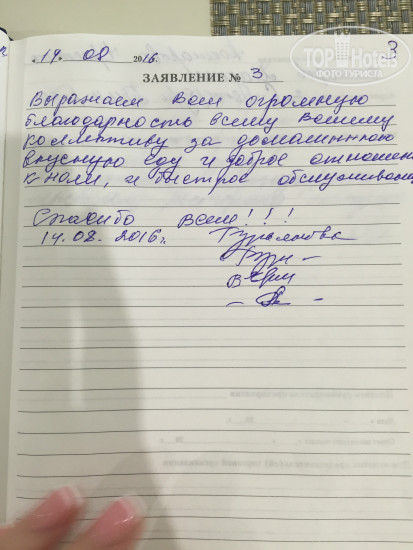 3
„14“ 08 2016 г.
ЗАЯВЛЕНИЕ № 3
Выражаем Вам огромную
благодарность всему Вашему
коллективу за домашнюю
вкусную еду и доброе отношение
к нами, и быстрое обслуживание
Спасибо Всем!!!
14.08.2016г.
TOP Hotels
ФОТО ТУРИСТА